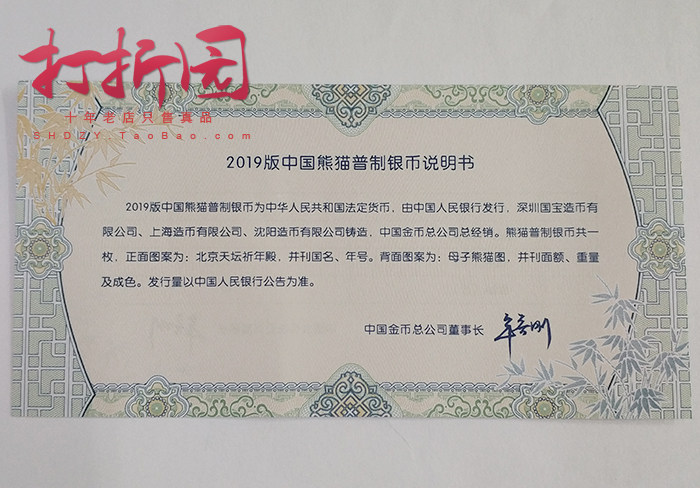 打折园
十年老店只售真品
SHDZY.TaoBao.com
2019版中国熊猫普制银币说明书
2019版中国熊猫普制银币为中华人民共和国法定货币，由中国人民银行发行，深圳国宝造币有
限公司、上海造币有限公司、沈阳造币有限公司铸造，中国金币总公司总经销。熊猫普制银币共一
枚，正面图案为：北京天坛祈年殿，并刊国名、年号。背面图案为：母子熊猫图，并刊面额、重量
及成色。发行量以中国人民银行公告为准。
中国金币总公司董事长